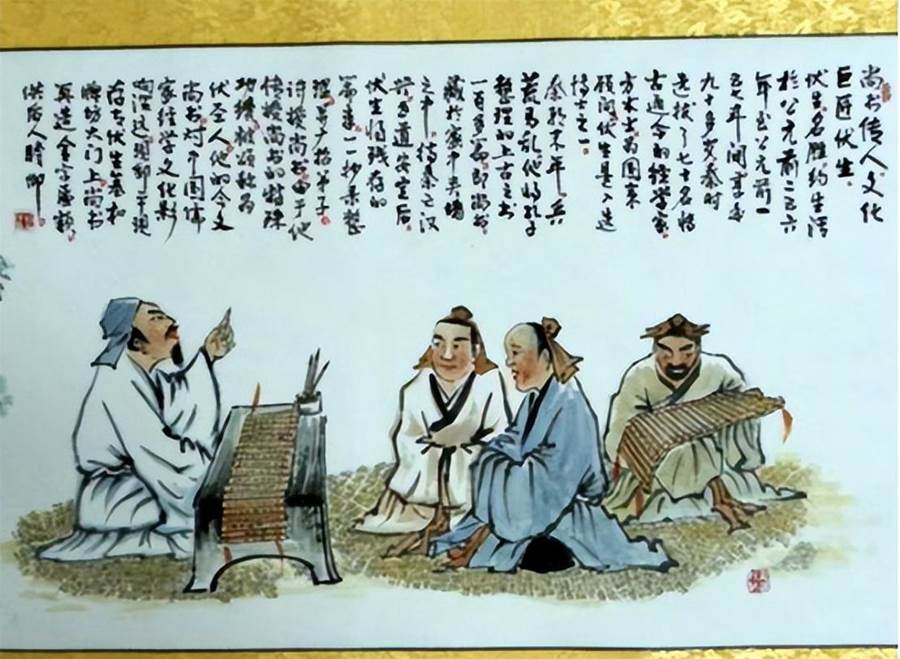 尚书传人文化
巨匠伏生。
伏生名胜约生活
於公元前二六
年至公元前一
年间享年
九十多岁秦时
选拔了七十名
古通今的经学家
方术士为国家
顾问伏生是入选
博士之一
秦朝末年兵
荒马乱他将孔子
整理的上古之书
一百多篇即尚书
藏於家中夹墙
之中待秦亡汉
兴 道安定后
伏生将残存的
篇章一一抄录整
理并广招弟子
讲授尚书由于他
传授尚书的特殊
功绩被颂称为
伏圣人他的今文
尚书对中国儒
家经学文化影
响深远现邹平现
存古伏生墓和
牌坊大门上尚书
再造金字匾额
供后人瞻仰。